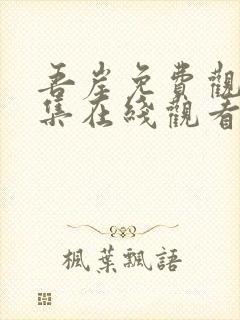 吾岸免費觀
集在綫觀看
楓葉飄語